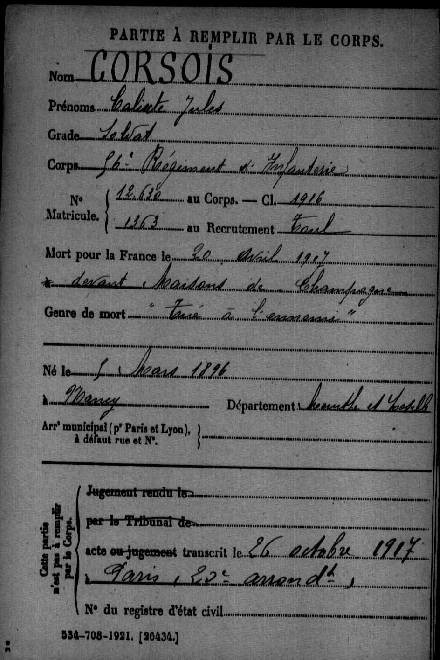 PARTIE À REMPLIR PAR LE CORPS.
Nom CORSOIS
Prénoms Calixte Jules
Grade Soldat
Corps 56e Régiment d'Infanterie
N° Matricule. { 12.630 au Corps. — Cl. 1916
1363 au Recrutement Toul
Mort pour la France le 20 avril 1917
à devant Maisons de Champagne
Genre de mort "Tué à l'ennemi"
Né le 5 Mars 1896
à Nancy Département Meurthe et Moselle
Arr^t municipal (p^r Paris et Lyon), à défaut rue et N°.
Cette partie n'est pas à remplir par le Corps.
Jugement rendu le
par le Tribunal de
acte ou jugement transcrit le 26 octobre 1917
à Paris, 20e arrond^t
N° du registre d'état civil
534-708-1921. [26434.]